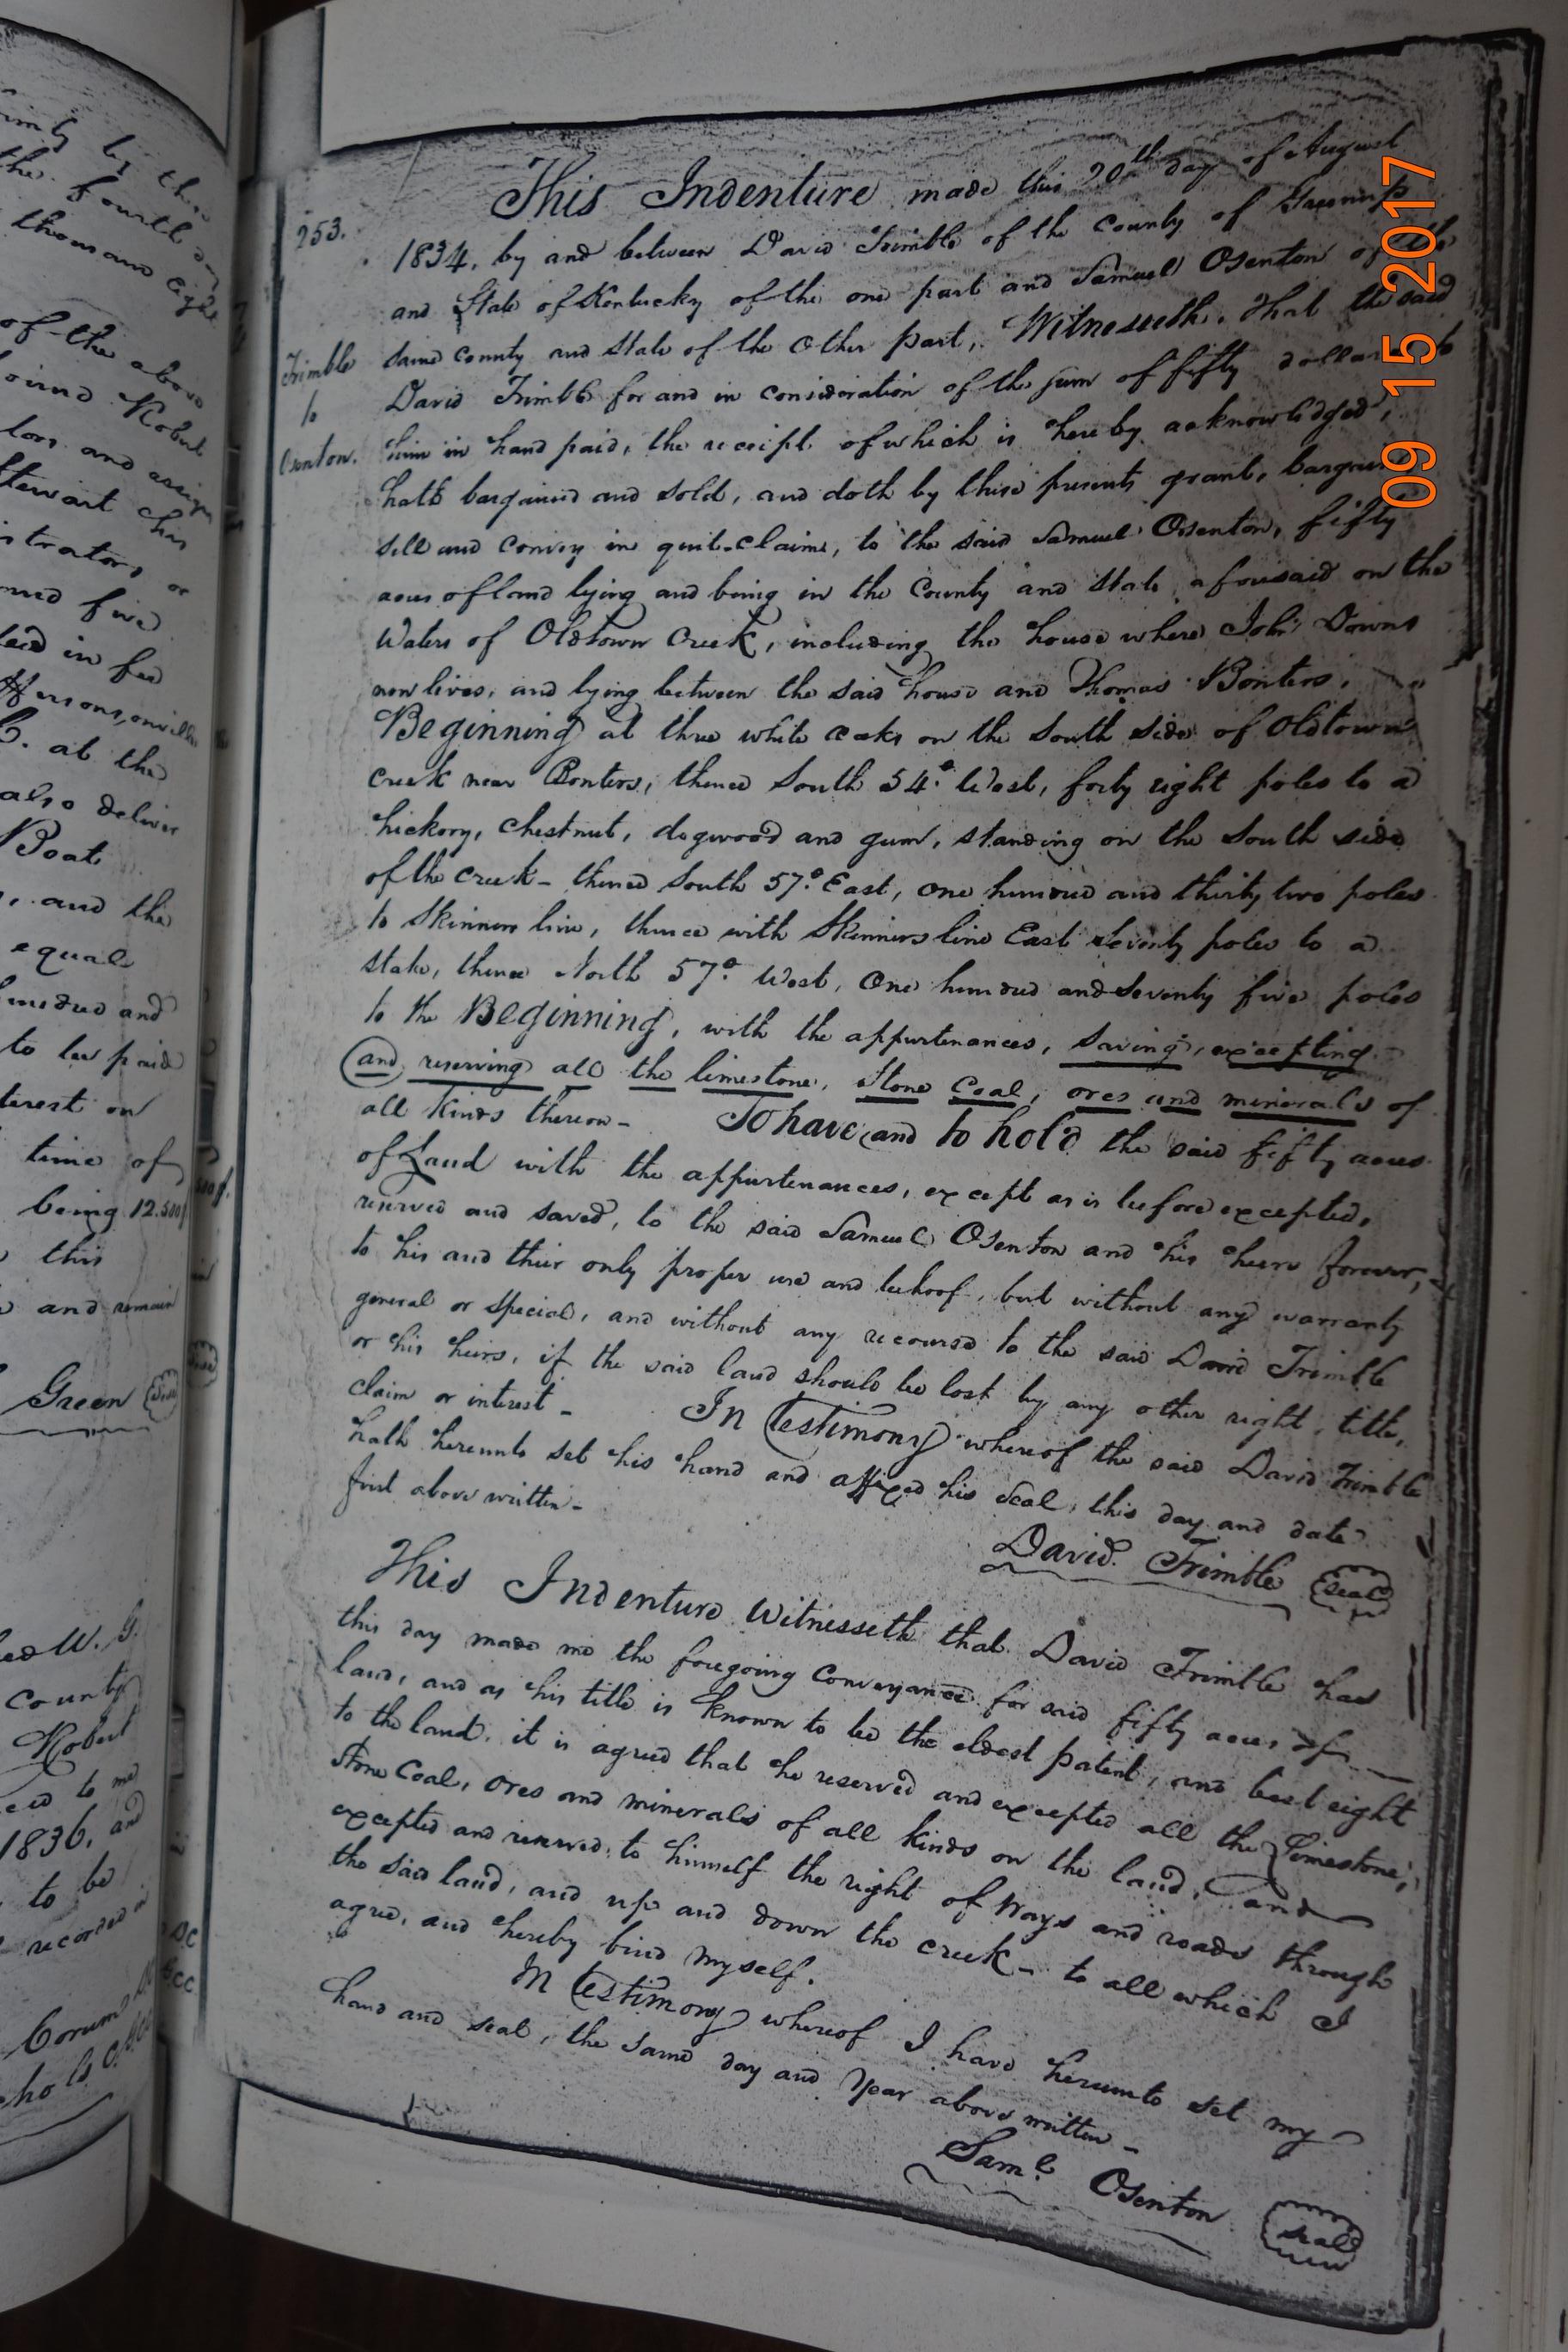 253.
Trimble
to
Osenton.
This Indenture made this 20th day of August
1834, by and between David Trimble of the County of Greenup
and State of Kentucky of the one part and Samuel Osenton of the
same county and state of the other part, Witnesseth. That the said
David Trimble for and in consideration of the sum of fifty dollars to
him in hand paid, the receipt of which is hereby acknowledged,
hath bargained and sold, and doth by these presents grant, bargain
sell and convey in quit-claim, to the said Samuel Osenton, fifty
acres of land lying and being in the County and State aforesaid on the
Waters of Oldtown Creek, including the house where John Downs
now lives, and lying between the said house and Thomas Bonters.
Beginning at three white oaks on the South side of Oldtown
creek near Bonters, thence South 54° West, forty eight poles to a
hickory, chestnut, dogwood and gum, standing on the South side
of the creek - thence South 57° East, one hundred and thirty two poles
to Skinners line, thence with Skinners line East seventy poles to a
stake, thence North 57° West, One hundred and seventy five poles
to the Beginning, with the appurtenances, saving, excepting
and reserving all the limestone, stone coal, ores and minerals of
all kinds thereon - To have and to hold the said fifty acres
of Land with the appurtenances, except as is before excepted,
reserved and saved, to the said Samuel Osenton and his heirs forever,
to his and their only proper use and behoof, but without any warranty
general or special, and without any recourse to the said David Trimble
or his heirs, if the said land should be lost by any other right, title,
claim or interest - In testimony whereof the said David Trimble
hath hereunto set his hand and affixed his seal, this day and date
first above written -
David Trimble seal
This Indenture Witnesseth that David Trimble has
this day made me the foregoing conveyance for said fifty acres of
land, and as his title is known to be the eldest patent, and best right
to the land, it is agreed that he reserved and excepted all the Limestone,
Stone Coal, ores and minerals of all kinds on the land, and
excepted and reserved, to himself the right of Ways and roads through
the said land, and up and down the creek - to all which I
agree, and hereby bind myself.
In testimony whereof I have hereunto set my
hand and seal, the same day and year above written -
Saml. Osenton seal
09 15 2017
by these
the fourth day
thousand eight
of the above
Robert
and assigns
Stewart his
or
five
in fee
at the
also deliver
Boat
and the
equal
hundred and
to be paid
interest on
time of
being 12.500
this
and remain
Green seal
W. G.
County
Robert
to me
1836, and
to be
recorded